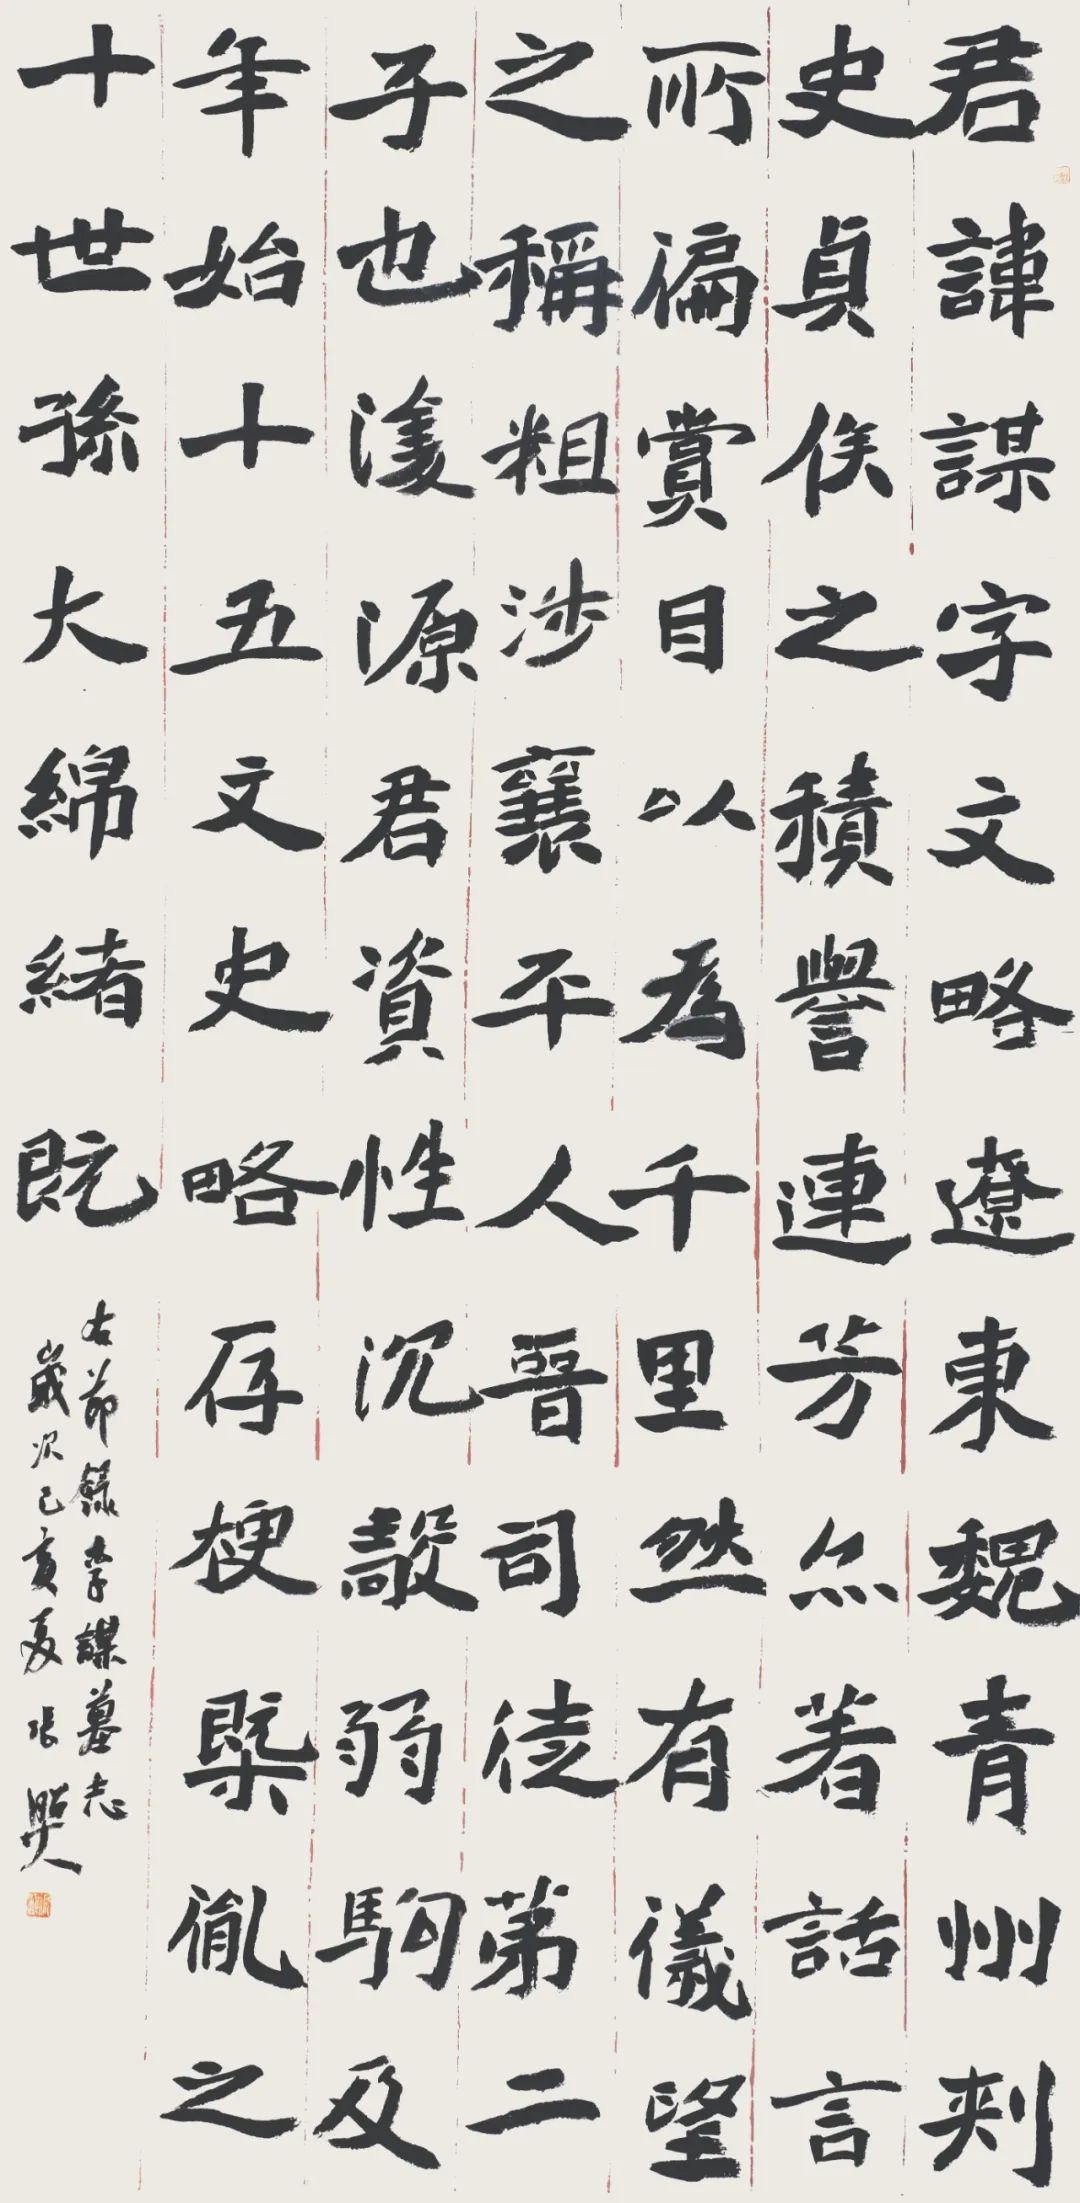 君諱謀字文略遼東魏青州刾
史貞侯之積譽連芳尒著話言
所偏賞目以為千里然有儀望
之稱粗涉襄平人晉司徒第二
子也浚源君資性沉毅弱駒及
年始十五文史略存梗槩胤之
十世孫大綿緒既
右節錄李謀墓志
歲次己亥夏張